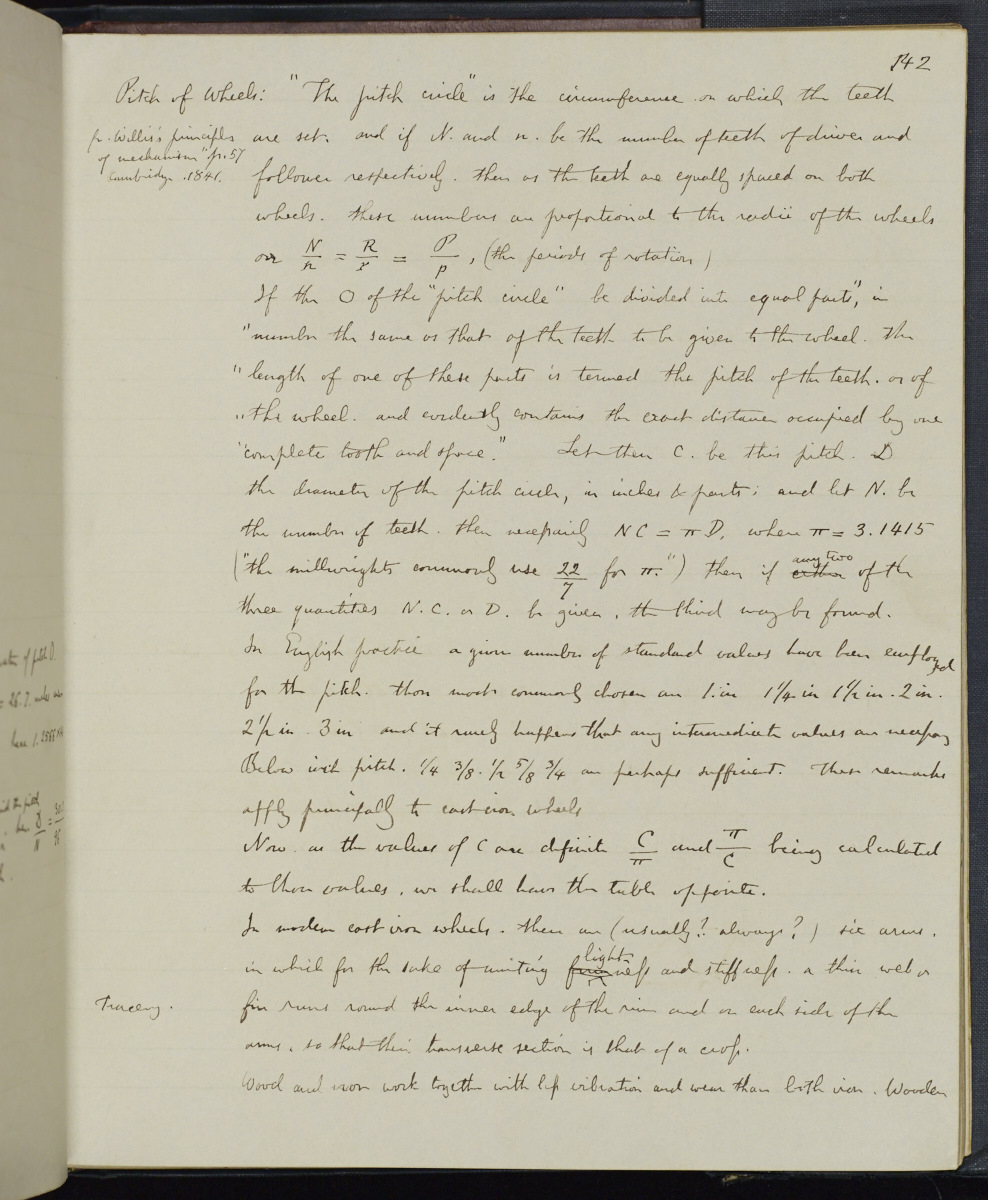 142
Pitch of Wheels: "The pitch circle" is the circumference on which the teeth
fr. Willis's principles
of mechanism" p. 57
Cambridge. 1841.
are set. and if N. and n. be the number of teeth of driver and
follower respectively. then as the teeth are equally spaced on both
wheels. these numbers are proportional to the radii of the wheels
or N/n = R/r = P/p, (the periods of rotation)
If the O of the "pitch circle" be divided into equal parts", in
"number the same as that of the teeth to be given to the wheel. the
"length of one of these parts is termed the pitch of the teeth. or of
"the wheel. and evidently contains the exact distance occupied by one
"complete tooth and space." Let then C. be this pitch. D
the diameter of the pitch circle, in inches & parts; and let N. be
the number of teeth. then necessarily NC = π D, where π = 3.1415
("the millwrights commonly use 22/7 for π.") then if either any two of the
three quantities N. C. or D. be given, the third may be found.
In English practice a given number of standard values have been employed
for the pitch. those most commonly chosen are 1. in 1 1/4 in 1 1/2 in. 2 in.
2 1/2 in. 3 in and it rarely happens that any intermediate values are necessary
Below inch pitch. 1/4 3/8. 1/2 5/8 3/4 are perhaps sufficient. These remarks
apply principally to cast iron wheels
Now as the values of C are definite C/π and π/C being calculated
to those values, we shall have the table opposite.
In modern cast iron wheels. there are (usually? always?) six arms.
in which for the sake of uniting lightness and stiffness. a thin web or
Tracery.
fin runs round the inner edge of the rim and on each side of the
arms, so that their transverse section is that of a cross.
Wood and iron work together with less vibration and wear than both iron. Wooden